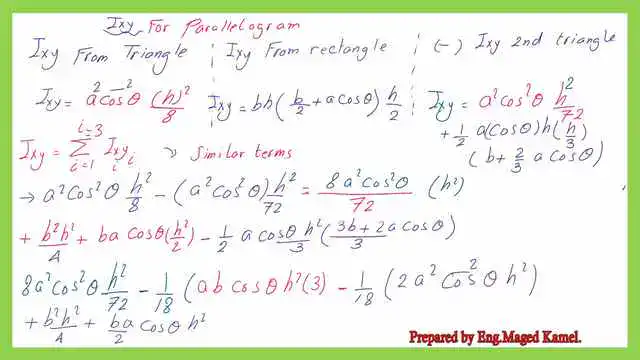 Ixy For Parallelogram
Ixy From Triangle
Ixy From rectangle
(-) Ixy 2nd triangle
Ixy = a² cos²θ (h)²/8
Ixy = bh (b/2 + a cosθ) h/2
Ixy = a² cos²θ h²/72
+ 1/2 a(cosθ) h (h/3)
(b + 2/3 a cosθ)
Ixy = Σ i=1 i=3 Ixy i i » Similar terms
→ a² cos²θ h²/8 - (a² cos²θ) h²/72 = 8a² cos²θ/72 (h²)
+ b²h²/4 + ba cosθ (h²/2) - 1/2 a cosθ h²/3 (3b + 2a cosθ/3)
8a² cos²θ h²/72 - 1/18 (ab cosθ h² (3) - 1/18 (2a² cos²θ h²)
+ b²h²/4 + ba/2 cosθ h²
Prepared by Eng.Maged Kamel.